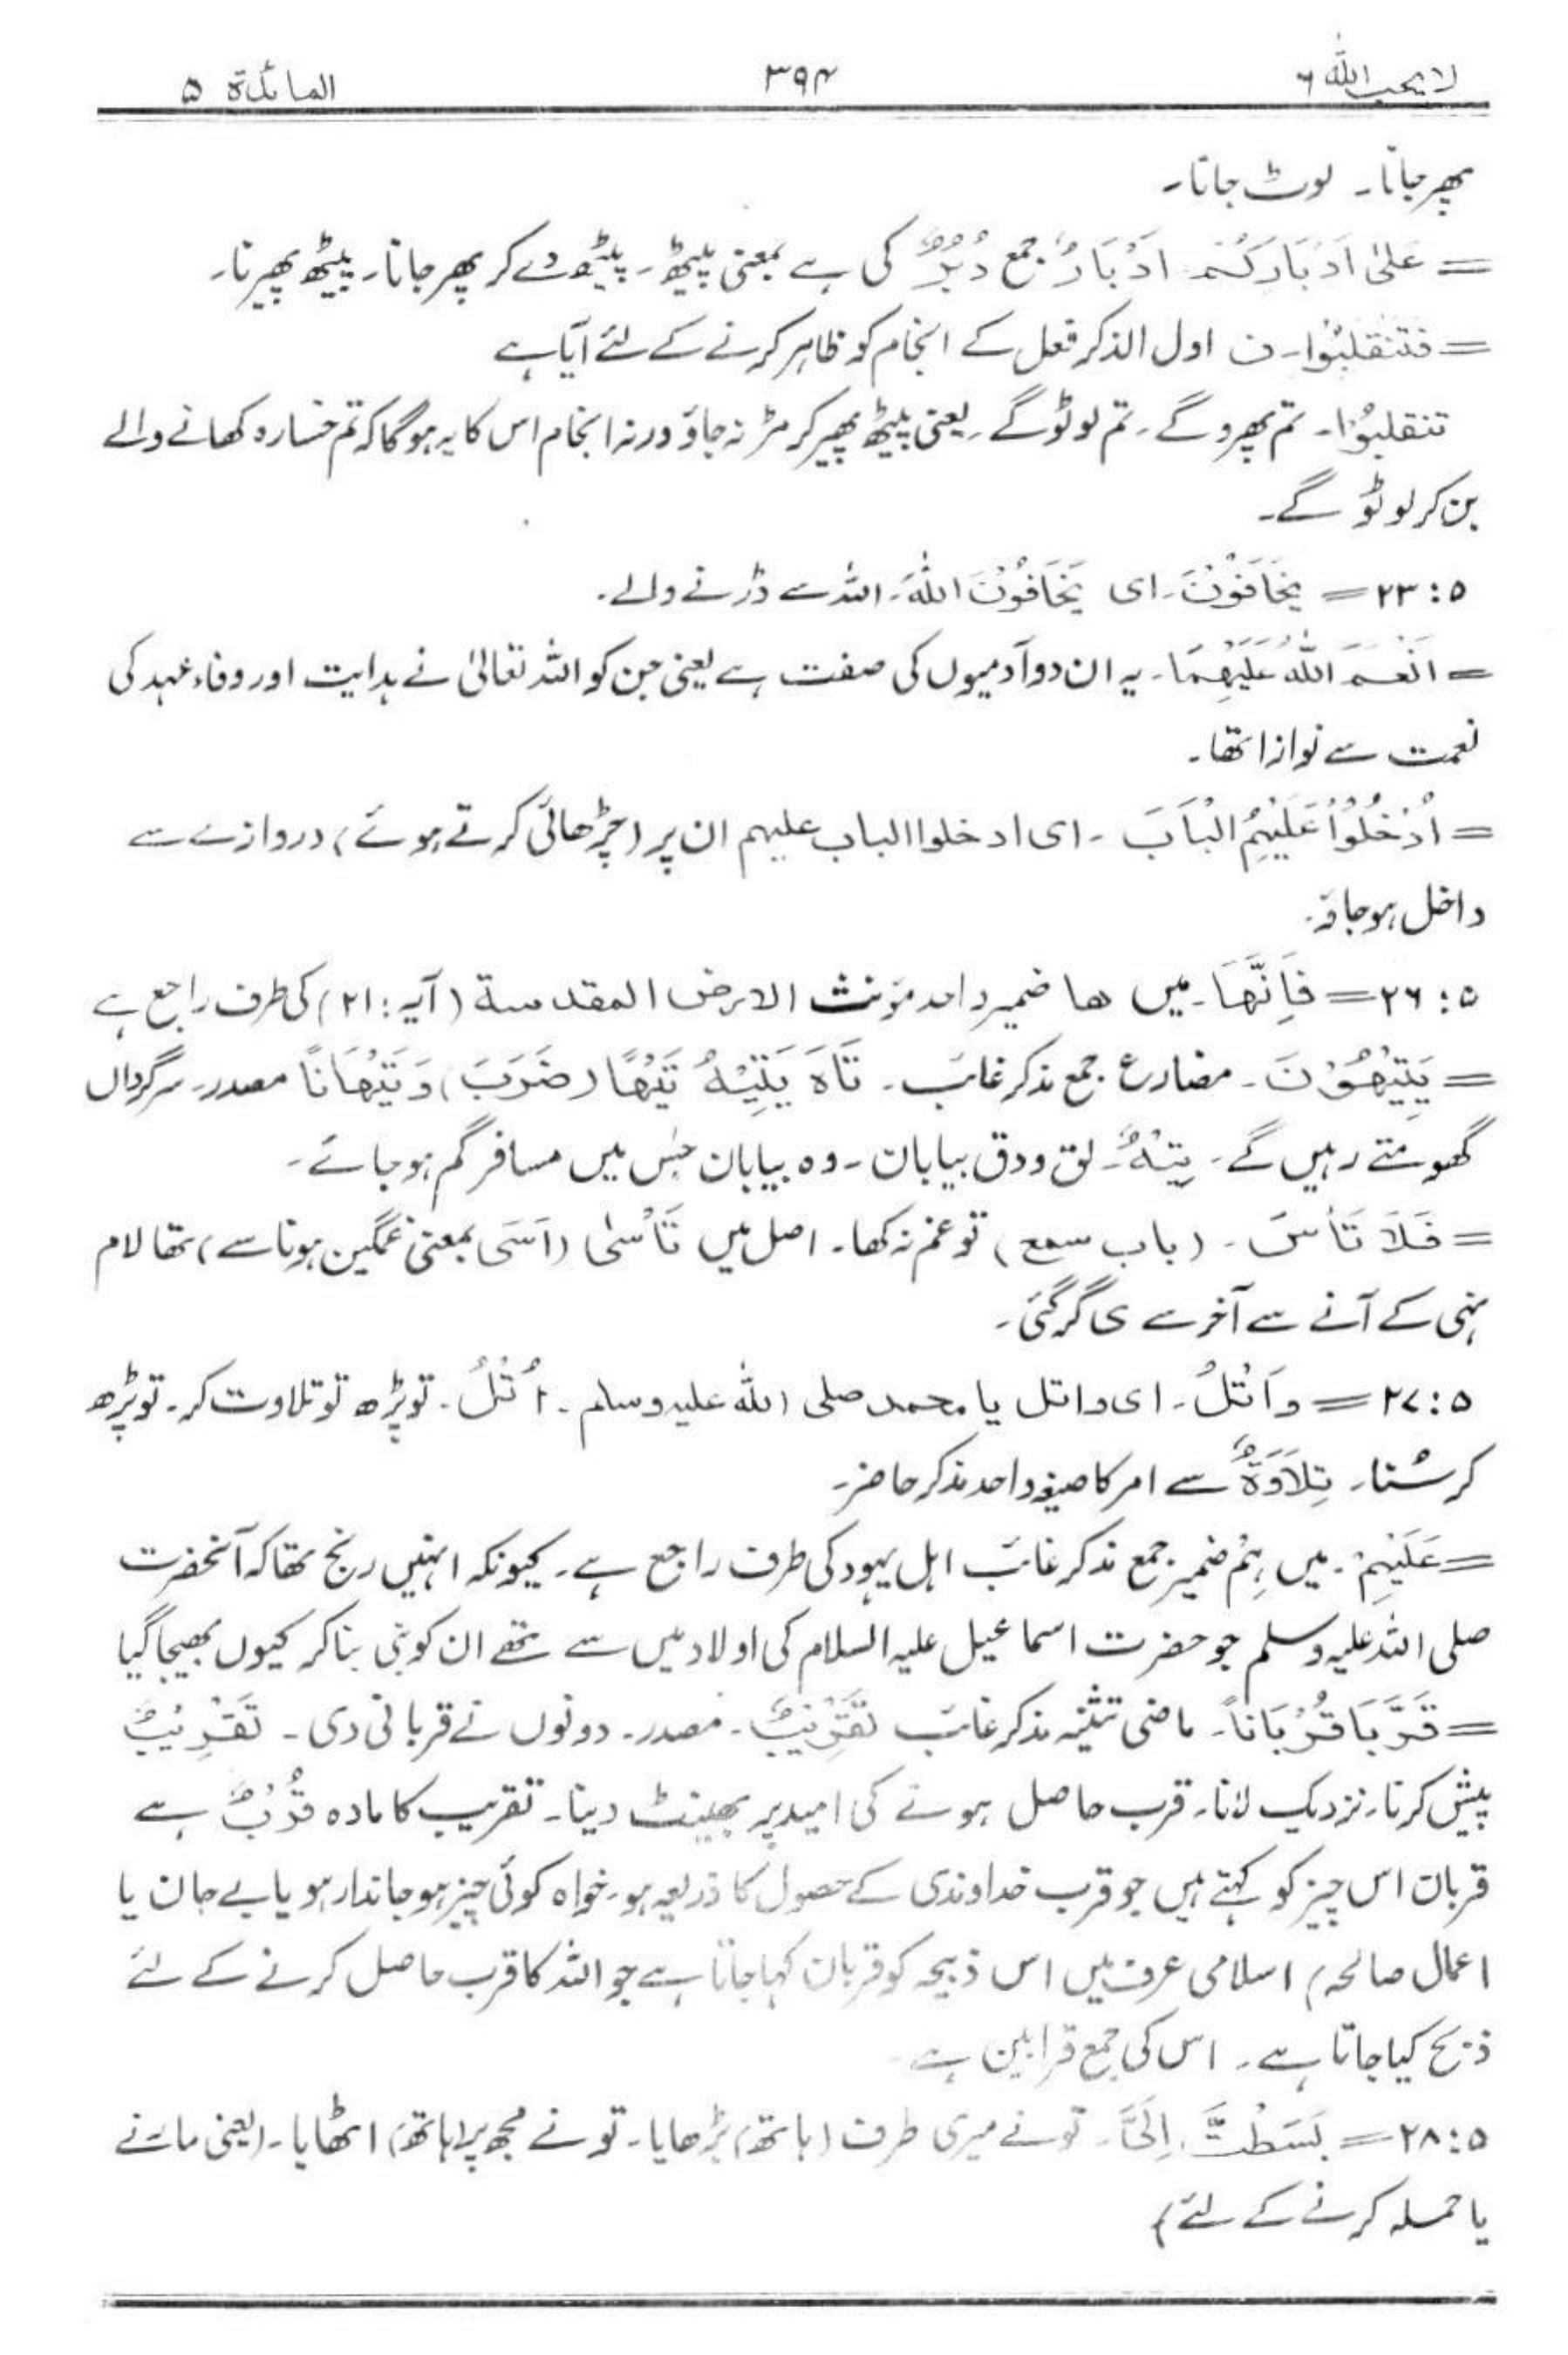 لا یحب اللہ ۶ ۳۹۴ المائدۃ ۵
پھر جانا۔ لوٹ جانا۔
= عَلٰی اَدْبَارِکُمْ اَدْبَارٌ جمع دُبُرٌ کی ہے بمعنی پیٹھ۔ پیٹھ دے کر پھر جانا۔ پیٹھ پھیرنا۔
= فَتَنْقَلِبُوْا۔ ف اول الذکر فعل کے انجام کو ظاہر کرنے کے لئے آیا ہے
تنقلبُوْا۔ تم پھرو گے۔ تم لوٹو گے۔ یعنی پیٹھ پھیر کر مڑ نہ جاؤ ورنہ انجام اس کا یہ ہوگا کہ تم خسارہ کھانے والے
بن کر لوٹو گے۔
۲۳:۵ = یَخَافُوْنَ۔ ای یَخَافُوْنَ اللّٰہَ۔ اللہ سے ڈرنے والے۔
= اَنْعَمَ اللّٰہُ عَلَیْھِمَا۔ یہ ان دو آدمیوں کی صفت ہے یعنی جن کو اللہ تعالیٰ نے ہدایت اور وفاء عہد کی
نعمت سے نوازا تھا۔
= اُدْخُلُوْا عَلَیْہِمُ الْبَابَ ۔ ای ادخلوا الباب علیہم ان پر (چڑھائی کرتے ہوئے) دروازے سے
داخل ہو جاؤ۔
۲۶:۵ = فَاِنَّھَا۔ میں ھا ضمیر واحد مؤنث الارض المقدسۃ (آیہ: ۲۱) کی طرف راجع ہے
= یَتِیْھُوْنَ ۔ مضارع جمع مذکر غائب ۔ تَاہَ یَتِیْہُ تَیْھًا (ضَرَبَ) وَ تَیَھَانًا مصدر۔ سرگرداں
گھومتے رہیں گے۔ تِیْہٌ۔ لق و دق بیابان۔ وہ بیابان جس میں مسافر گم ہو جائے۔
= فَلَا تَاْسَ ۔ (باب سمع) تو غم نہ کھا۔ اصل میں تَاْسٰی (اَسَی بمعنی غمگین ہونا سے) تھا لام
نہی کے آنے سے آخر سے ی گر گئی۔
۲۷:۵ = وَاتْلُ۔ ای واتل یا محمد صلی اللہ علیہ وسلم ۔ اُتْلُ۔ تو پڑھ تو تلاوت کر۔ تو پڑھ
کر سُنا۔ تِلَاوَۃٌ سے امر کا صیغہ واحد مذکر حاضر۔
= عَلَیْہِمْ۔ میں ہِمْ ضمیر جمع مذکر غائب اہل یہود کی طرف راجع ہے۔ کیونکہ انہیں رنج تھا کہ آنحضرت
صلی اللہ علیہ وسلم جو حضرت اسماعیل علیہ السلام کی اولاد میں سے تھے ان کو نبی بنا کر کیوں بھیجا گیا
= قَرَّبَا قُرْبَانًا۔ ماضی تثنیہ مذکر غائب تَقْرِیْبٌ۔ مصدر۔ دونوں نے قربانی دی۔ تَقْرِیْبٌ
پیش کرنا۔ نزدیک لانا۔ قرب حاصل ہونے کی امید پر بھینٹ دینا۔ تقریب کا مادہ قُرْبٌ ہے
قربان اس چیز کو کہتے ہیں جو قرب خداوندی کے حصول کا ذریعہ ہو۔ خواہ کوئی چیز ہو جاندار ہو یا بے جان یا
اعمال صالحہ) اسلامی عرف میں اس ذبیحہ کو قربان کہا جاتا ہے جو اللہ کا قرب حاصل کرنے کے لئے
ذبح کیا جاتا ہے۔ اس کی جمع قرابین ہے۔
۲۸:۵ = بَسَطْتَّ اِلَیَّ۔ تو نے میری طرف (ہاتھ) بڑھایا۔ تو نے مجھ پر (ہاتھ) اٹھایا۔ (یعنی مارنے
یا حملہ کرنے کے لئے)